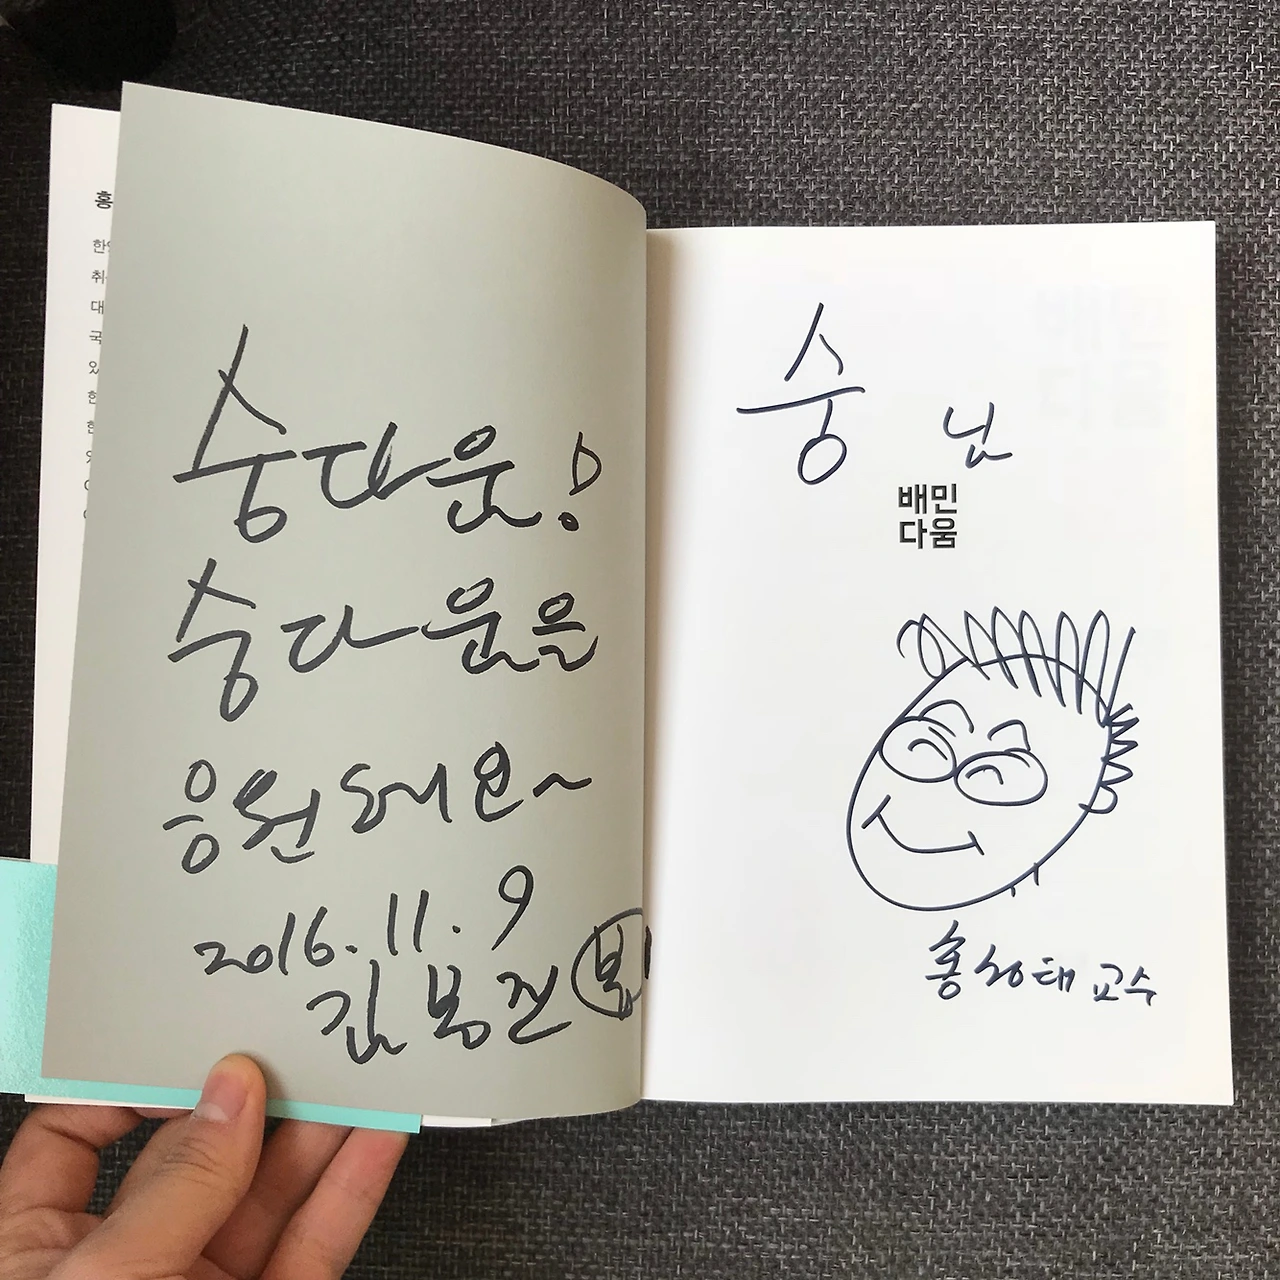 홍
한
취
대
국
있
한
한
숭다운!
숭다운을
응원해요~
2016.11.9
김봉진 봉
숭 님
배민
다움
홍성태 교수